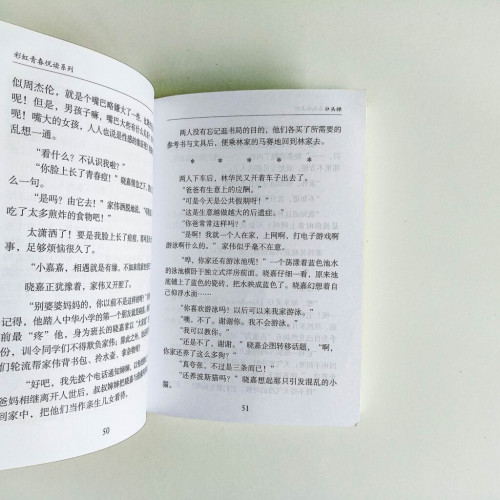 彩虹青春悦读系列
似周杰伦,就是个嘴巴略嫌大了一些,比
呢!但是,男孩子嘛,嘴巴大些有什么关
呢!嘴大的女孩,人人也说是性感的
乱想一通。
“看什么?不认识我啦?”
“你脸上长了青春痘!”晓嘉
么一句。
“是吗?由它去!”家伟洒脱地说,
吃了太多煎炸的食物吧!”
太潇洒了!要是我脸上长了痘痘,
事,足够烦恼很久了。
“小嘉嘉,相遇就是有缘,不如来我家
晓嘉正犹豫着,家伟又开
“别婆婆妈妈的,你以前不是这样的呢!”
记得,他踏入中华小学的第一个朋友就是
前最“疼”他,身为班长的晓嘉常以“大
份,训令同学们不得欺负家伟;
们轮流帮家伟背书包、拎水壶、拿杂物
“好吧,我先拨个电话通知婶婶,
爸妈相继离开人世后,叔叔婶婶把晓嘉
到家中,把他们当作亲生儿女看待。
50
两人没有忘记逛书局的目的,他们各买了所需要的
参考书与文具后,便乘林家的马赛地回到林家去。
* * * * *
两人下车后,林华民又开着车子出去了。
“爸爸有生意上的应酬。”
“可是今天是公共假期呀!”
“这是生意越做越大的后遗症。”
“你爸常常这样吗?”
“是啊!我就一个人在家,上网啊,打电子游戏啊
游泳啊什么的。”家伟似乎毫不在意。
“哗,你家还有游泳池呢!”一个荡漾着蓝色池水
的泳池横卧于独立式洋房前面。晓嘉仔细一看,原来池
底铺上了蓝色的瓷砖,把水映成蓝色。晓嘉幻想着自
己仰浮水面……
“你喜欢游泳吗?以后可以来我家游泳。”
“噢,不了。谢谢你。我不会游泳。”
“我可以教你。”
“还是不了,谢谢。”晓嘉企图转移话题,“啊,
你家还养了这么多狗?”
“真夸张,不过是三条而已!”
“还养波斯猫吗?”晓嘉想起那只引发混乱的小
猫。
51